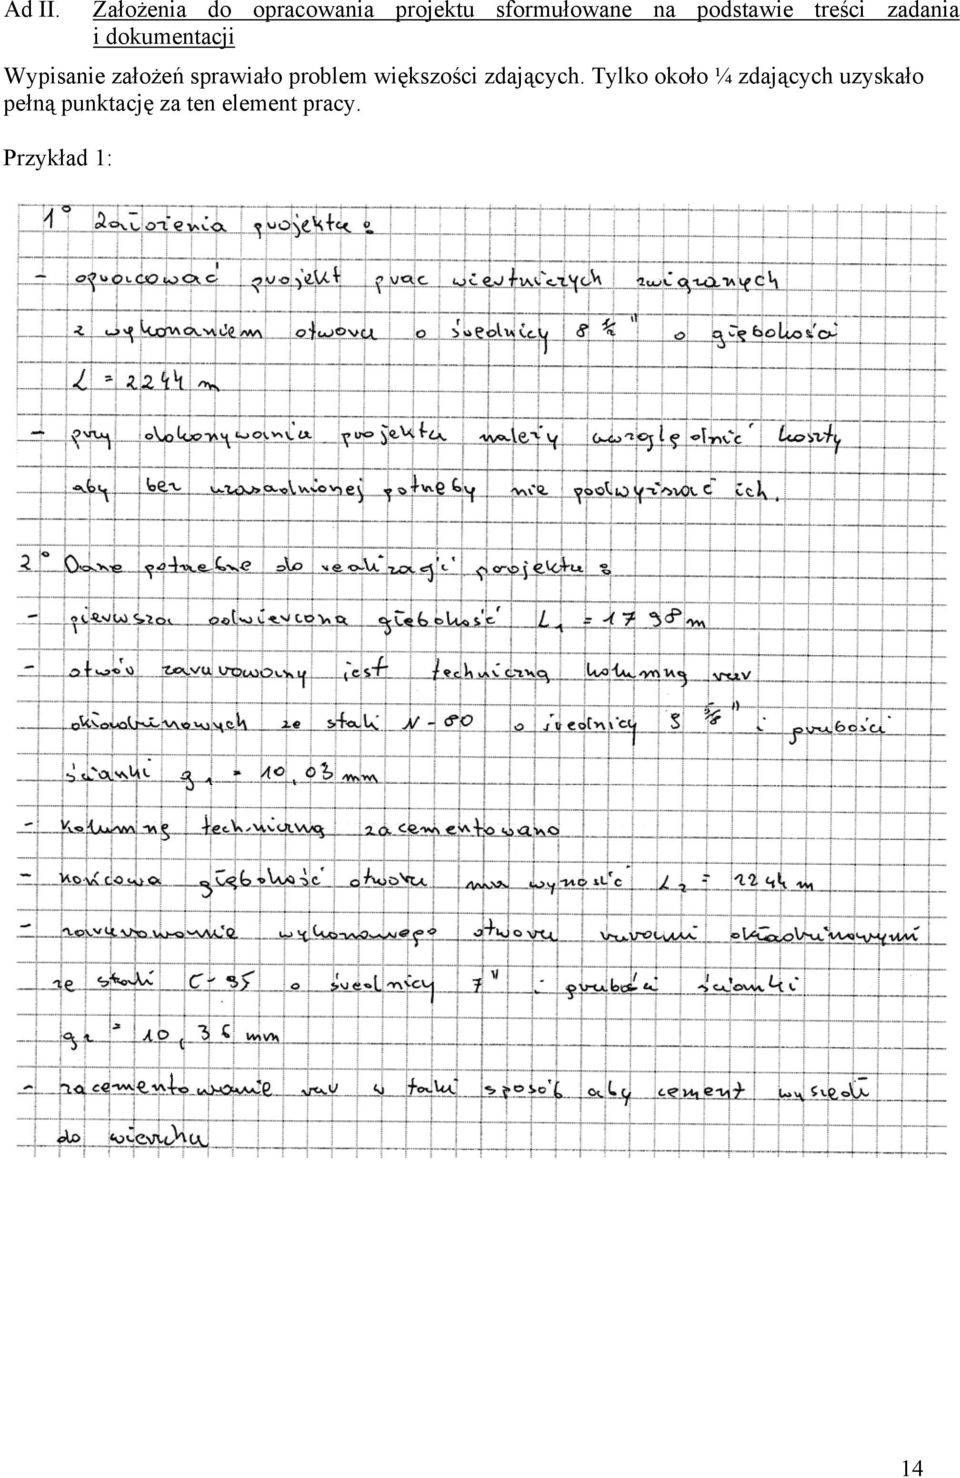 Ad II. Założenia do opracowania projektu sformułowane na podstawie treści zadania
i dokumentacji
Wypisanie założeń sprawiało problem większości zdających. Tylko około ¼ zdających uzyskało
pełną punktację za ten element pracy.
Przykład 1:
1° Założenia projektu:
- opracować projekt prac wiertniczych związanych
z wykonaniem otworu o średnicy 8 ½" o głębokości
L = 2244 m
- przy dokonywaniu projektu należy uwzględnić koszty
aby bez uzasadnionej potrzeby nie podwyższać ich.
2° Dane potrzebne do realizacji projektu:
- pierwsza odwiercona głębokość L₁ = 1798 m
- otwór zarurowany jest techniczną kolumną rur
okładzinowych ze stali N-80 o średnicy 9 5/8" i grubości
ścianki g₁ = 10,03 mm
- kolumnę techniczną zacementowano
- końcowa głębokość otworu ma wynosić L₂ = 2244 m
- zarurowanie wykonanego otworu rurami okładzinowymi
ze stali C-95 o średnicy 7" i grubości ścianki
g₂ = 10,36 mm
- zacementowanie rur w taki sposób aby cement wyszedł
do wierzchu
14